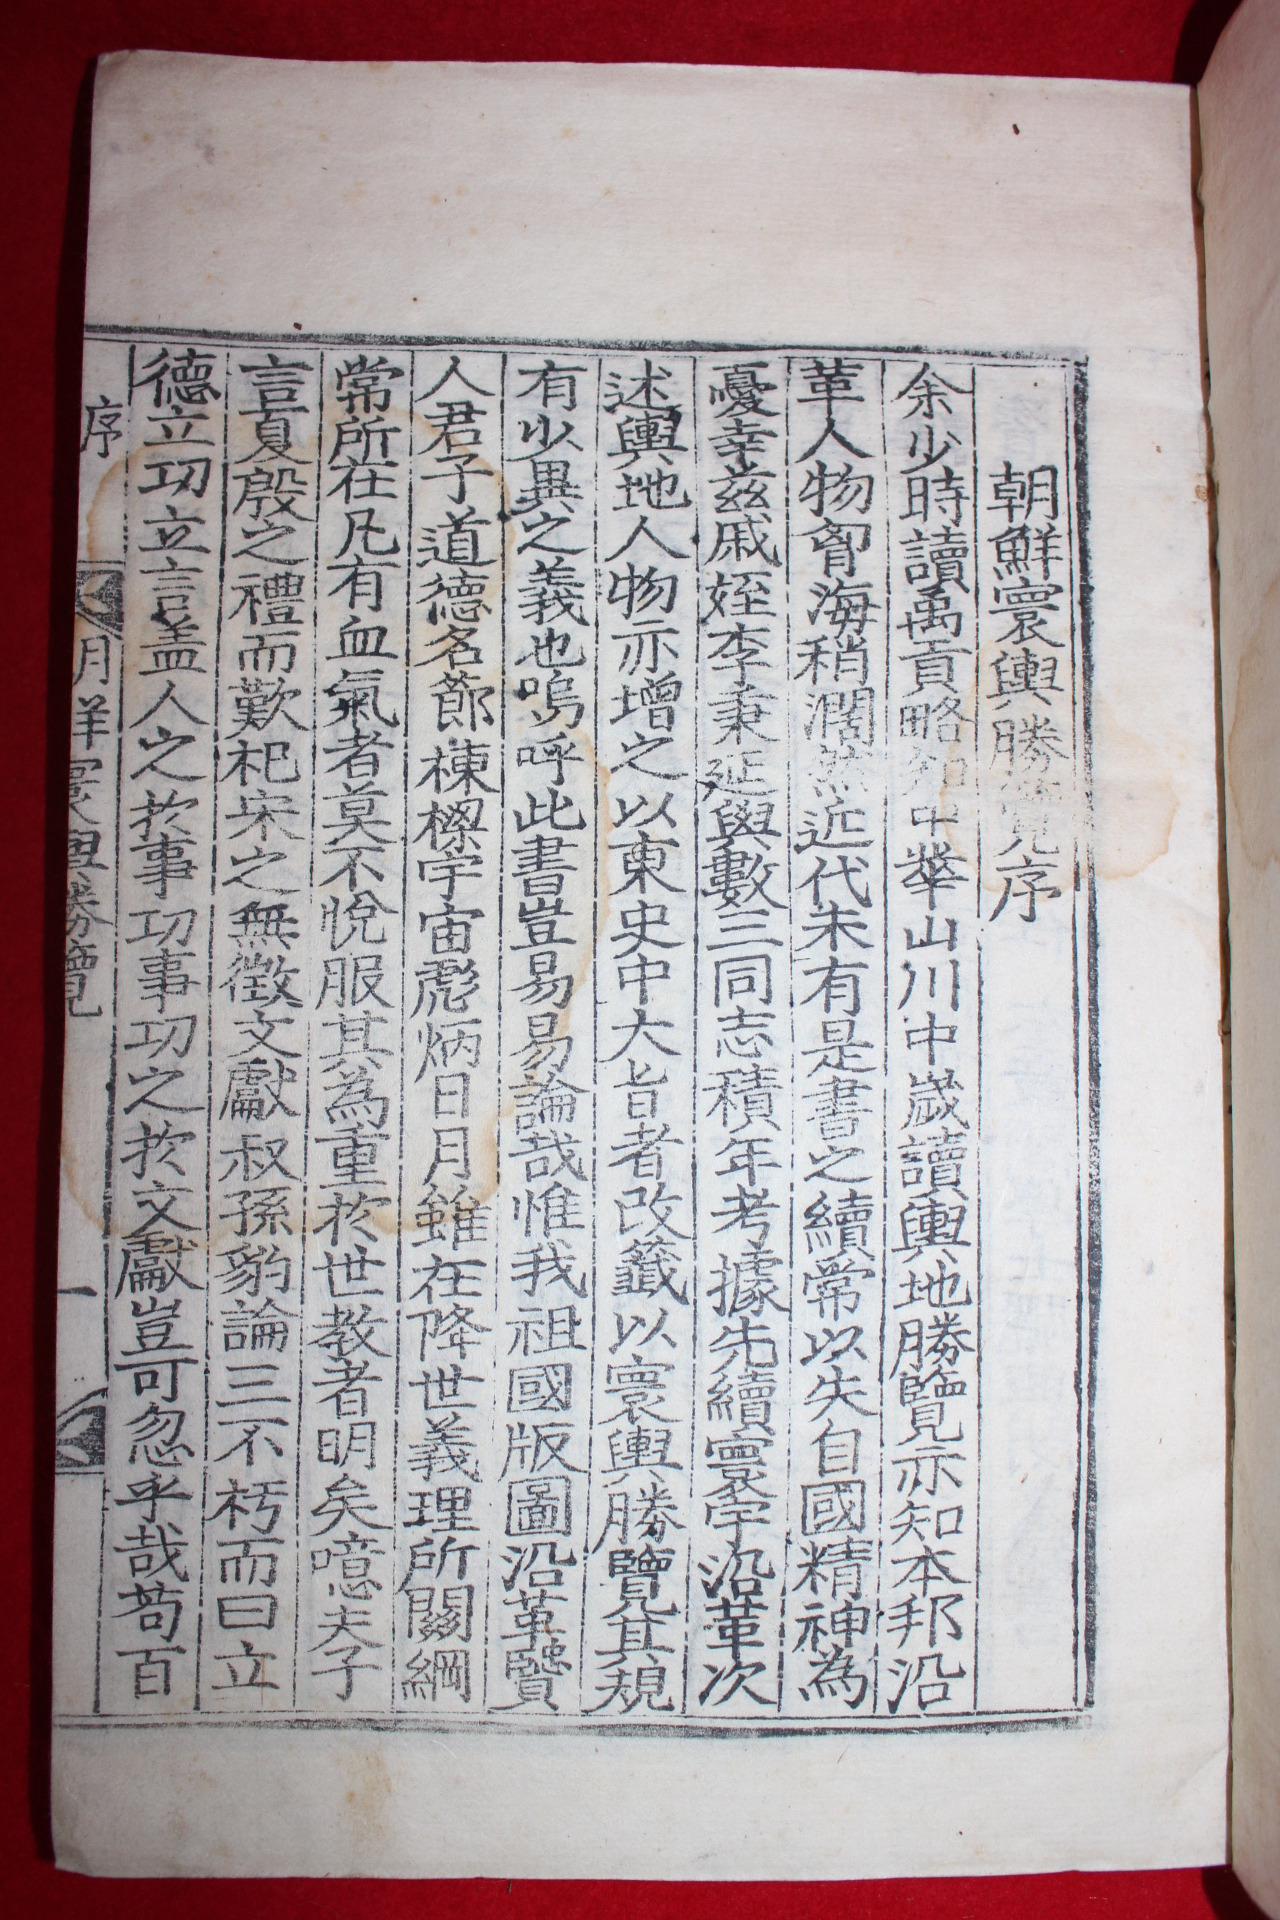 朝鮮寰輿勝覽序
余少時讀禹貢略知中華山川中歲讀輿地勝覽亦知本邦沿
革人物奫海稍濶然近代未有是書之續常以失自國精神為
憂幸玆戚姪李秉延與數三同志積年考據先續寰宇沿革次
述輿地人物亦增之以東史中大旨者改籤以寰輿勝覽其規
有少異之義也嗚呼此書豈易易論哉惟我祖國版圖沿革賢
人君子道德名節棟樑宇宙彪炳日月雖在降世義理所關綱
常所在凡有血氣者莫不悅服其為重於世教者明矣噫夫子
言夏殷之禮而歎杞宋之無徵文獻叔孫豹論三不朽而曰立
德立功立言盖人之於事功事功之於文獻豈可忽乎哉苟百
序
朝鮮寰輿勝覽
一